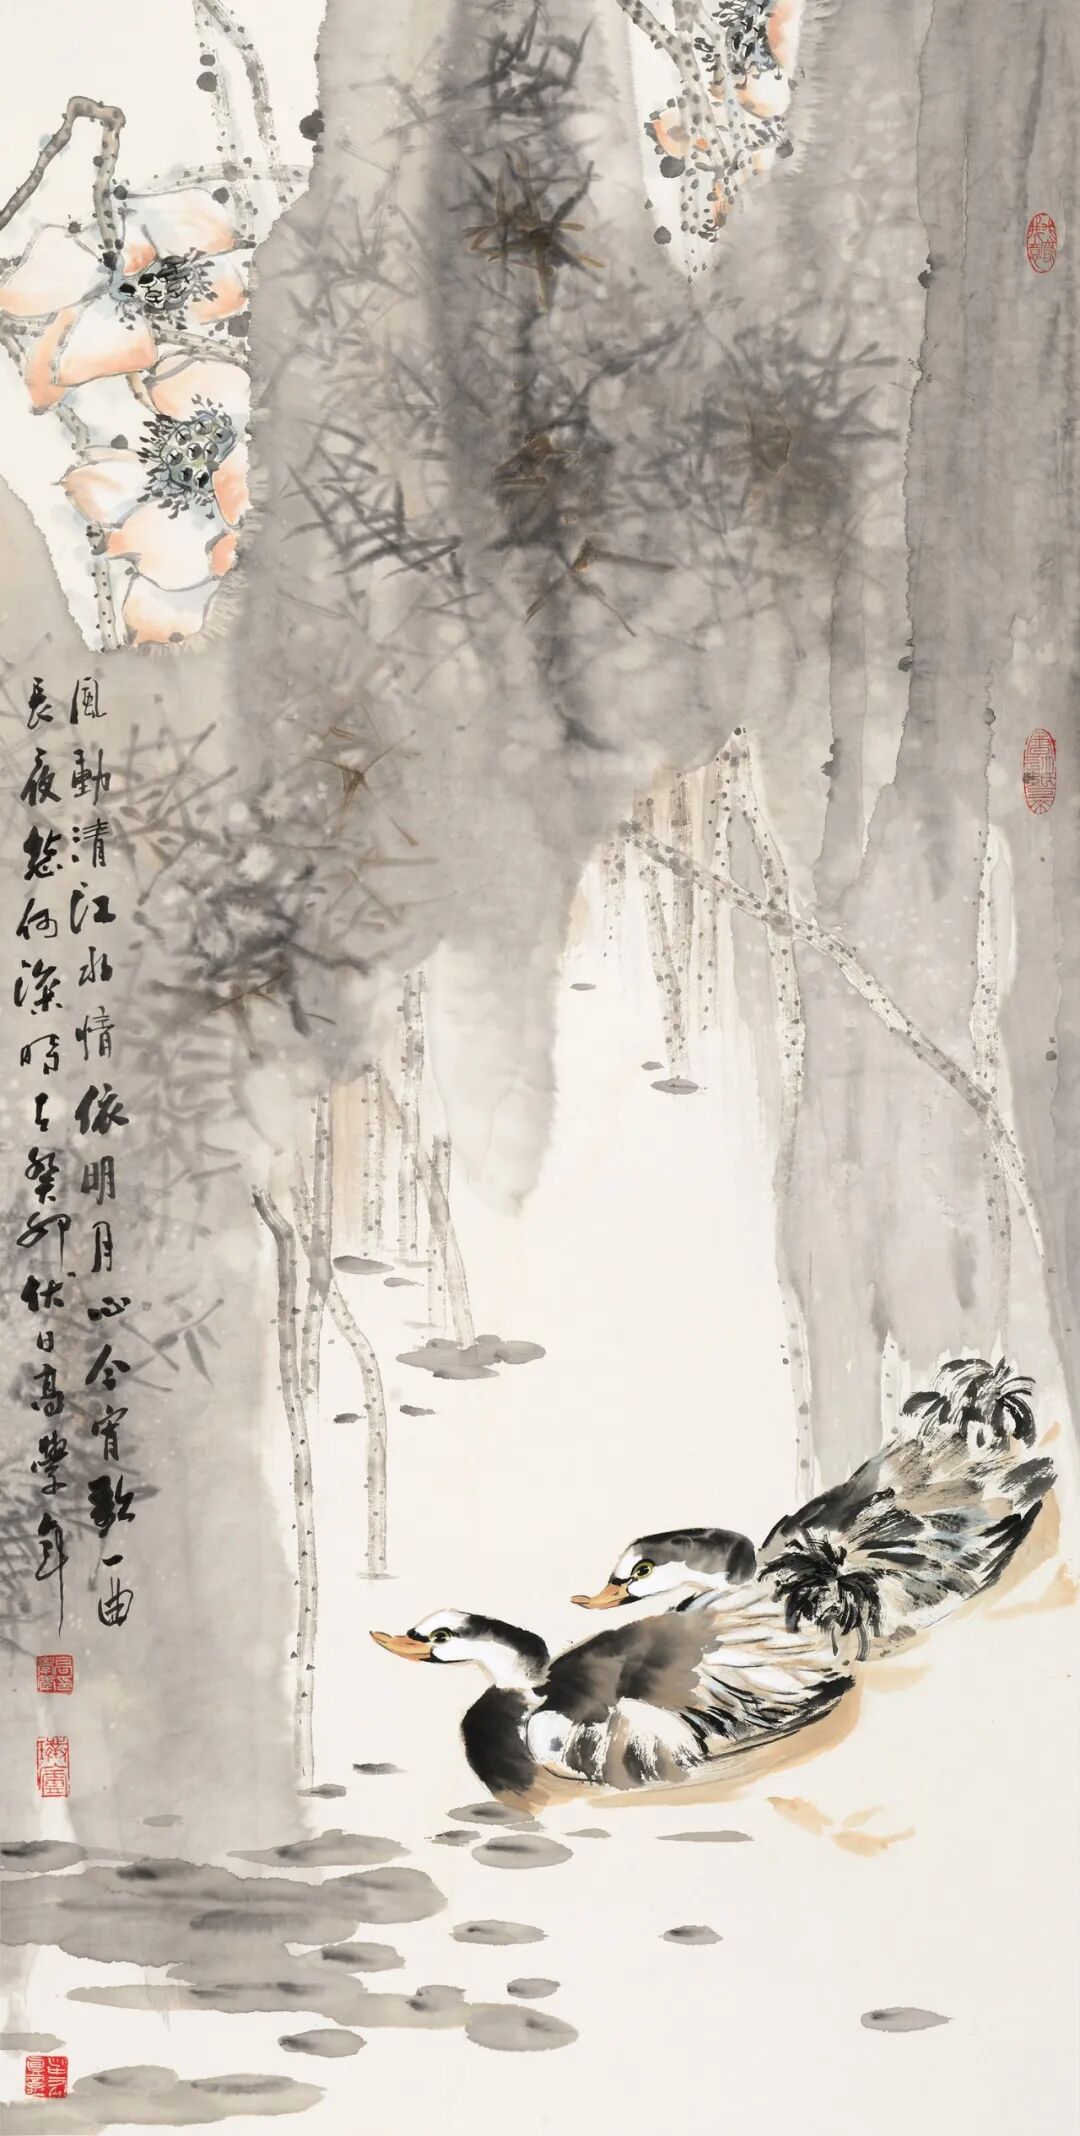 風動清江水情依明月心今宵歌一曲
長夜愁何深時癸卯伏日高學年